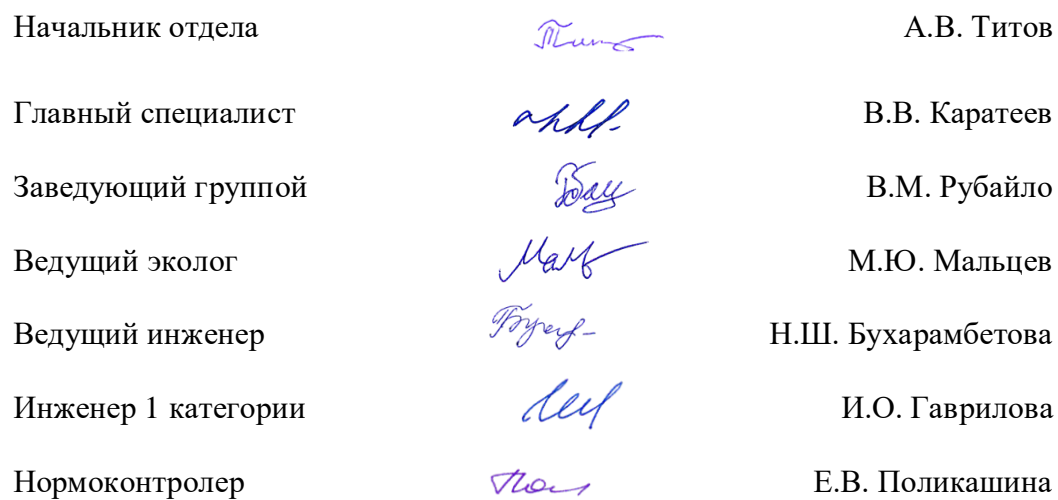 Начальник отдела А.В. Титов
Главный специалист В.В. Каратеев
Заведующий группой В.М. Рубайло
Ведущий эколог М.Ю. Мальцев
Ведущий инженер Н.Ш. Бухарамбетова
Инженер 1 категории И.О. Гаврилова
Нормоконтролер Е.В. Поликашина